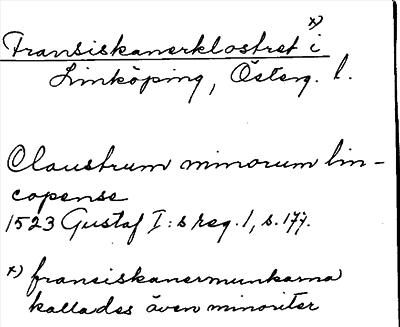 Fransiskanerklostret i x)
Linköping, Österg. l.
Claustrum minorum lin-
copense
1523 Gustaf I:s reg. 1, s. 177.
x) fransiskanermunkarna
kallades även minoriter